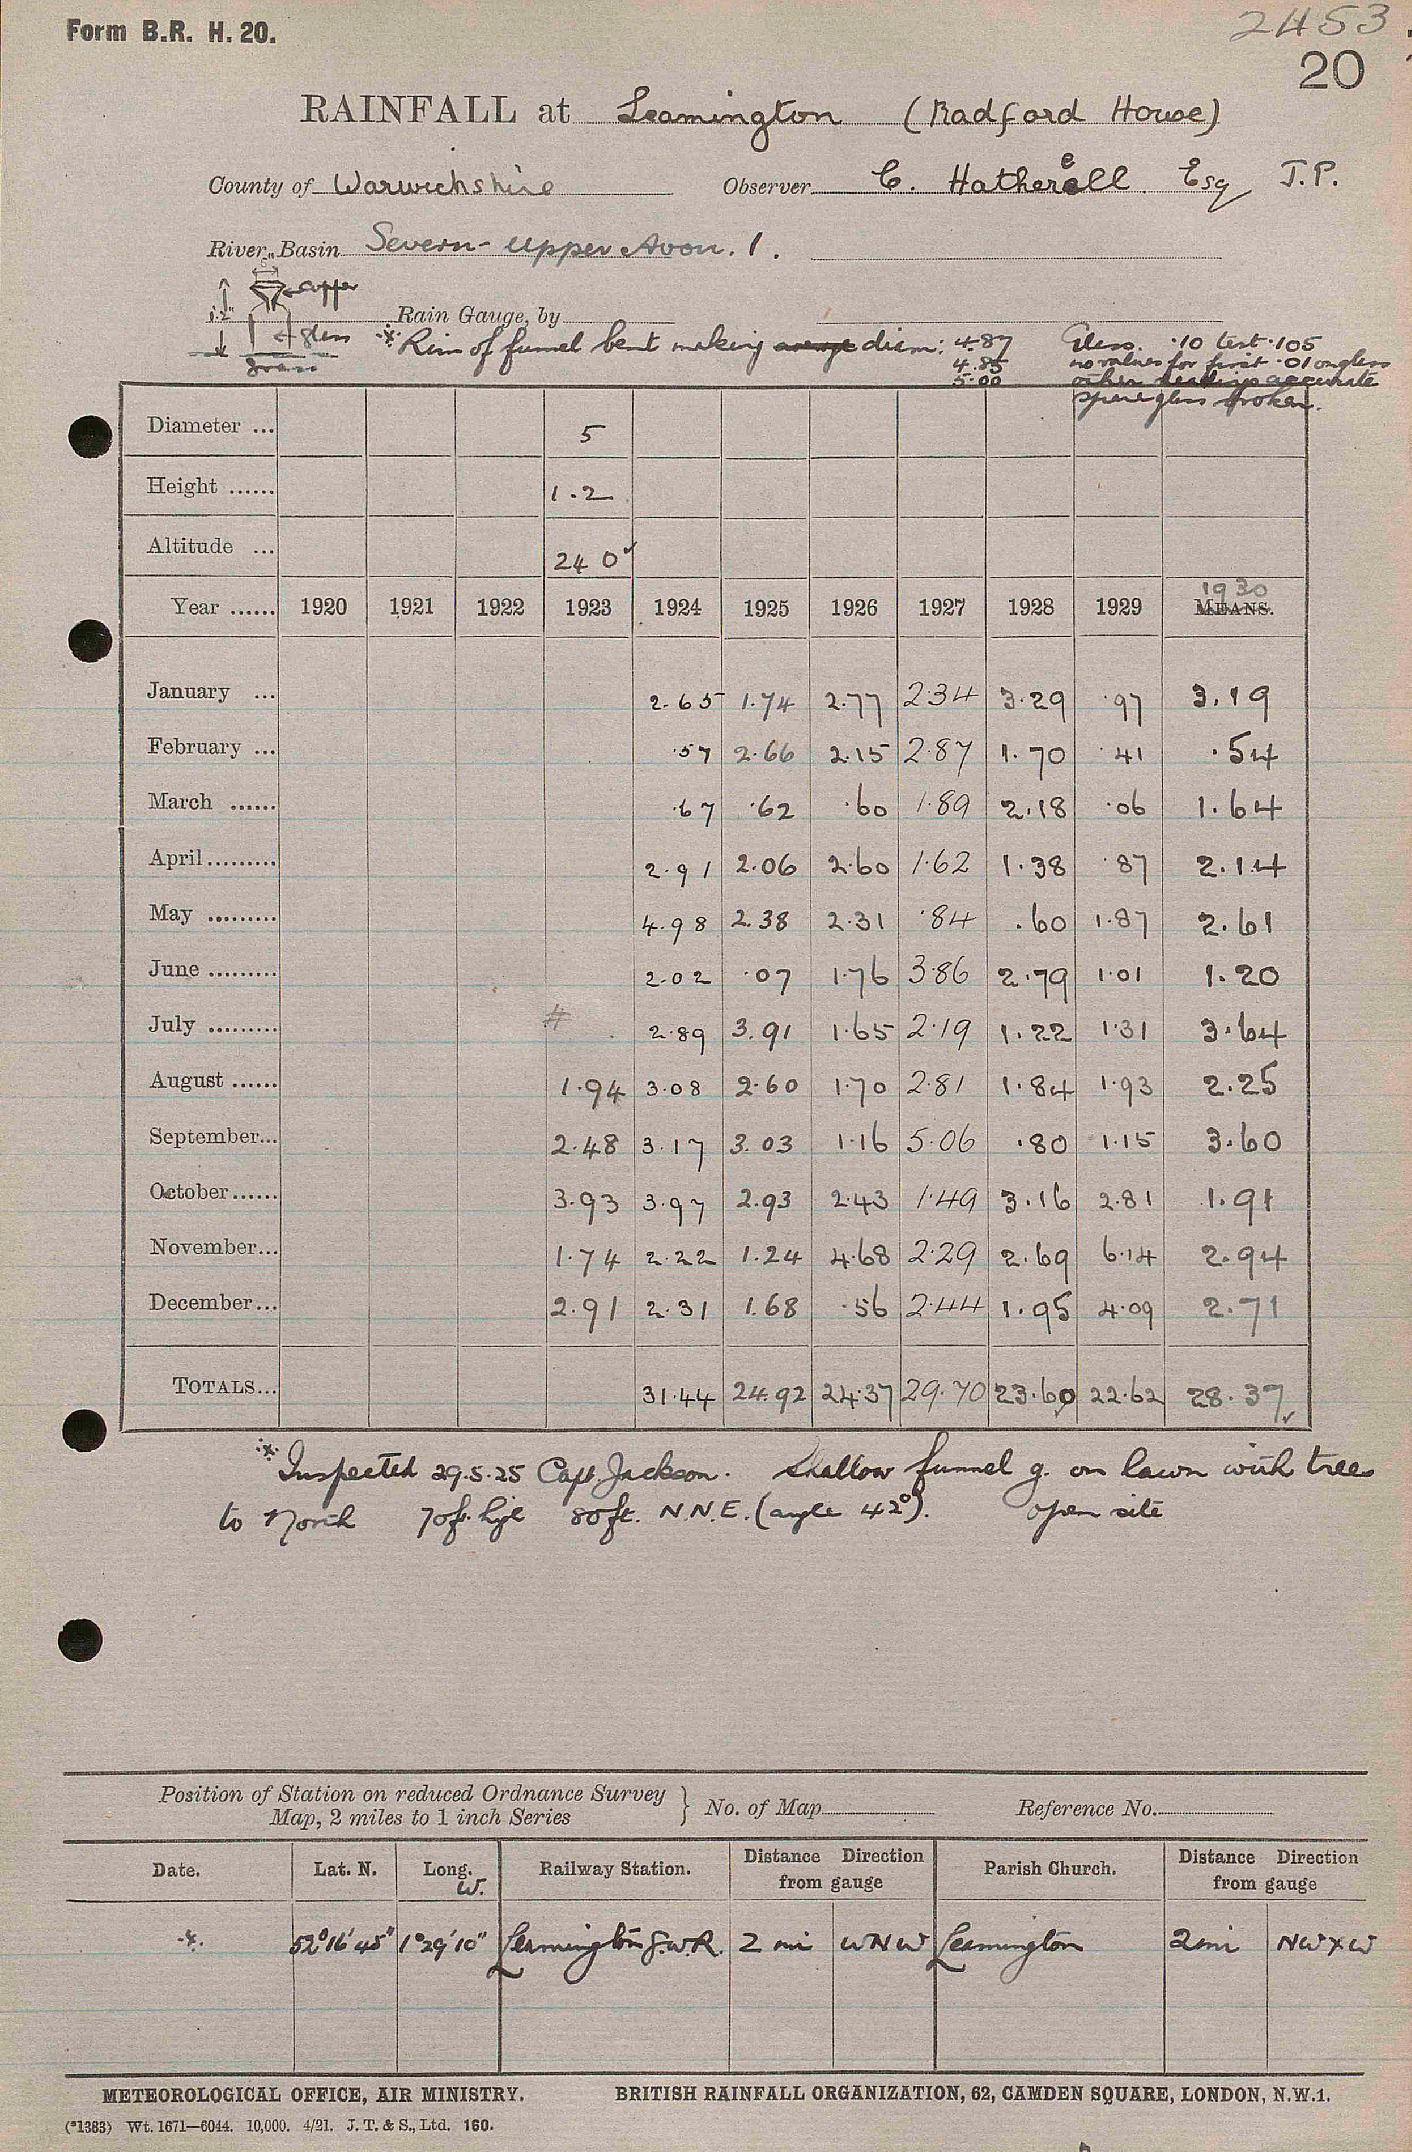 Form B.R. H. 20.
2453.
20
RAINFALL at Leamington (Radford House)
County of Warwickshire Observer C. Hatherell Esq J.P.
e
River Basin Severn - Upper Avon. 1.
5"
copper
1.2"
Rain Gauge, by
glass
grass
* Rim of funnel bent making average diam: 4.87
4.85
5.00
Glass. .10 test .105
no values for first .01 on glass
other readings accurate
spare glass broken.
Diameter ... 5
Height ...... 1.2
Altitude ... 240
1930
Year ...... 1920 1921 1922 1923 1924 1925 1926 1927 1928 1929 MEANS.
January ... 2.65 1.74 2.77 2.34 3.29 .97 3.19
February ... .57 2.66 2.15 2.87 1.70 .41 .54
March ...... .67 .62 .60 1.89 2.18 .06 1.64
April ......... 2.91 2.06 2.60 1.62 1.38 .87 2.14
May ......... 4.98 2.38 2.31 .84 .60 1.87 2.61
June ......... 2.02 .07 1.76 3.86 2.79 1.01 1.20
July ......... # 2.89 3.91 1.65 2.19 1.22 1.31 3.64
August ...... 1.94 3.08 2.60 1.70 2.81 1.84 1.93 2.25
September... 2.48 3.17 3.03 1.16 5.06 .80 1.15 3.60
October...... 3.93 3.97 2.93 2.43 1.49 3.16 2.81 1.91
November... 1.74 2.22 1.24 4.68 2.29 2.69 6.14 2.94
December... 2.91 2.31 1.68 .56 2.44 1.95 4.09 2.71
TOTALS... 31.44 24.92 24.37 29.70 23.60 22.62 28.37
* Inspected 29.5.25 Capt. Jackson. Shallow funnel g. on lawn with trees
to North 70ft. high 80ft. N.N.E. (angle 42°). open site
Position of Station on reduced Ordnance Survey
Map, 2 miles to 1 inch Series } No. of Map Reference No.
Date. Lat. N. Long. W. Railway Station. Distance Direction from gauge Parish Church. Distance Direction from gauge
*. 52°16'45" 1°29'10" Leamington G.W.R. 2 mi WNW Leamington 2 mi NW x W
METEOROLOGICAL OFFICE, AIR MINISTRY. BRITISH RAINFALL ORGANIZATION, 62, CAMDEN SQUARE, LONDON, N.W.1.
(*1383) Wt. 1671—6044. 10,000. 4/21. J. T. & S., Ltd. 160.